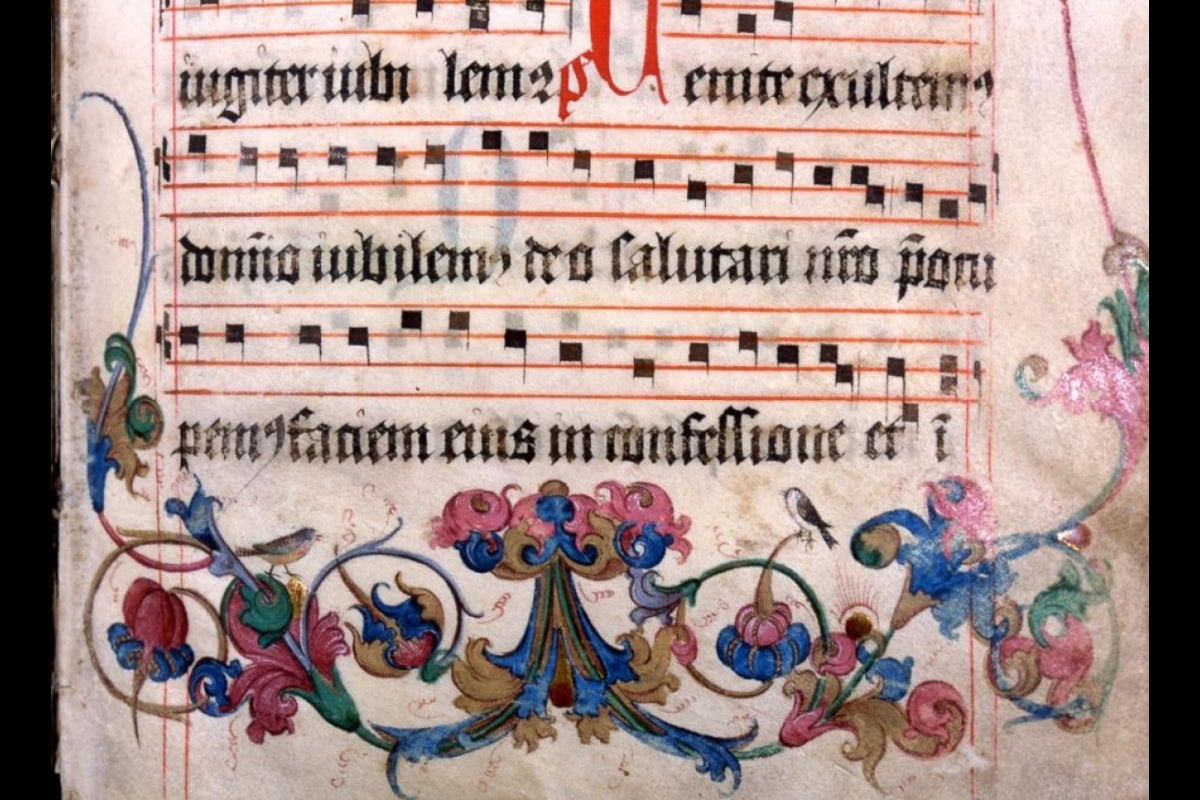 iugiter iubi lemꝰ ps Venite exultemꝰ
domīo iubilemꝰ deo salutari nr̄o p̄occu
pemꝰ faciem eius in confessione et ī